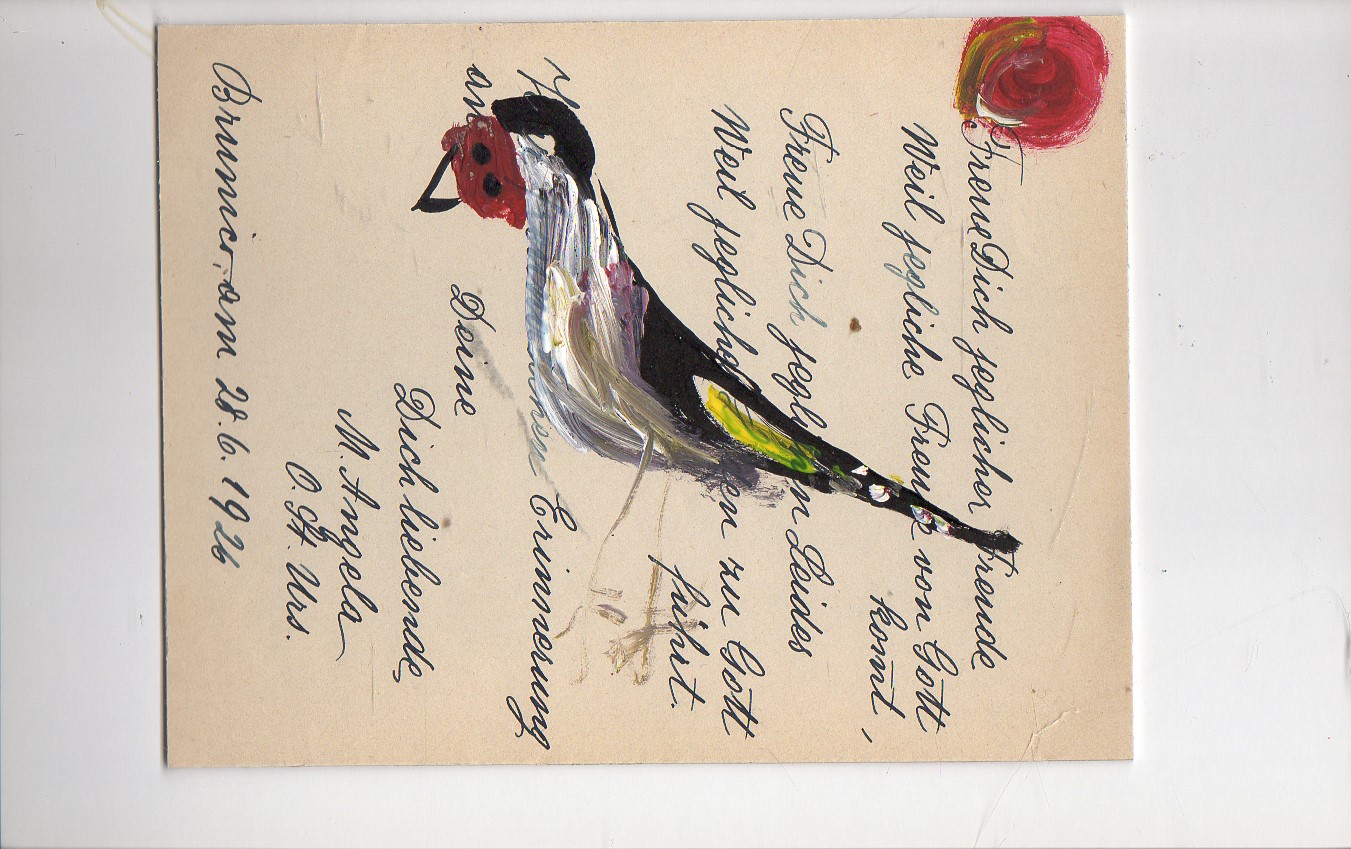 Freue Dich jeglicher Freude
Weil jegliche Freude von Gott
komt,
Freue Dich jegl n Leides
Weil jegliches en zu Gott
führt.
Erinnerung
an
Deine
Dich liebende
M. Angela
O. St. Urs.
Brunico, am 28.6.1926